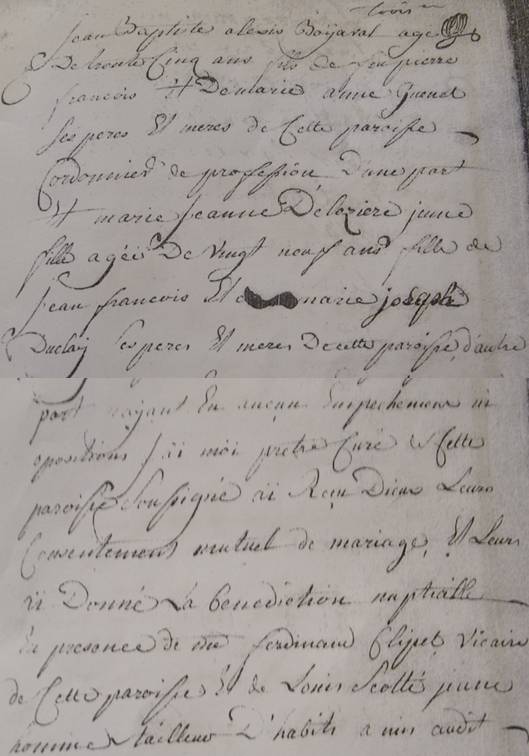 trois
Jean Baptiste alexis Boÿaval agé
De trente Cinq ans fils de feu pierre
francois Et De marie anne Guenet
Ses peres Et meres de Cette paroisse
Cordonnier de profession D'une part
Et marie Jeanne Deloziere jeune
fille agéé De vingt neuf ans fille de
Jean francois Et marie joseph
Duclaÿ Ses peres Et meres De cette paroisse d'autre
part naÿant Eu aucun Empechement ni
opositions J'ai moi prêtre Curé de Cette
paroisse Soussigné aï Reçu Leurs
Consentement mutuel de mariage Et Leurs
aï Donné La benediction nuptialle
En presence de ferdinand Clipet vicaire
de Cette paroisse Et de Louis jeune
homme tailleur D'habits a audit